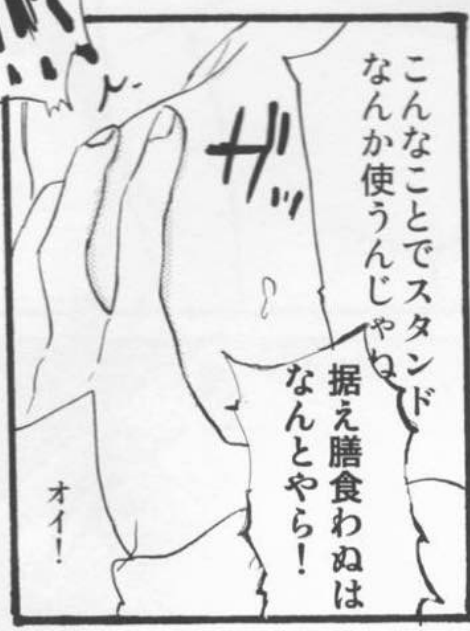 こんなことでスタンド
なんか使うんじゃね
据え膳食わぬは
なんとやら！
ガッ
オイ！